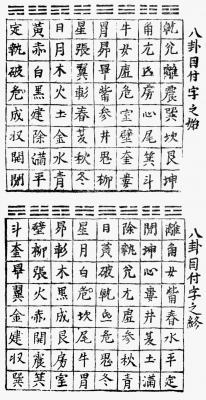 八卦目付字之始
乾兌離震巽坎艮坤
角亢氐房心尾箕斗
牛女虛危室壁奎婁
胃昴畢觜參井鬼柳
星張翼軫春夏秋冬
日月木火土金水青
黃赤白黑建除滿平
定執破危成収開閉
八卦目付字之終
離角女觜春水平定
閉坤心婁井夏土滿
除乾兌氐虛參秋青
日黃破執亢危鬼冬
星月白危坎尾牛胃
昴軫木黑成艮房室
壁柳張火赤開震箕
斗奎畢翼金建収巽